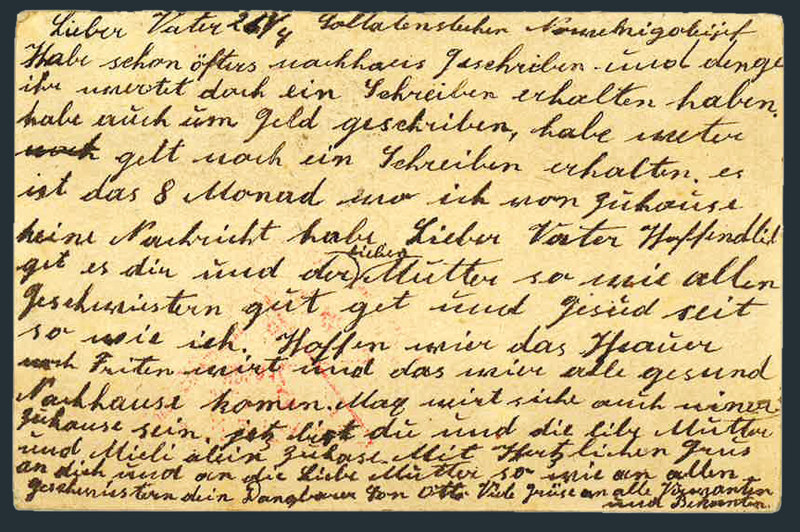 Lieber Vater 26/V 4 Solltatenslechen
Habe schon öfters nachhaus geschriben und denge
ihr wertet doch ein Schreiben erhalten haben.
habe auch um Geld geschriben, habe weter
noch gelt noch ein Schreiben erhalten. es
ist das 8 Monad wo ich von Zuhause
keine Nachricht habe. Lieber Vater Hoffendlich
get es dir und der lieben Mutter so wie allen
Geschwistern gut get und Gesud seit
so wie ich. Hoffen wier das Heauer
noch Friten wirt und das wier alle gesund
Nachhause komen. Mag wirt siche auch
Zuhause sein. jetz bist du und die libe Mutter
und Mieli alein Zuhase. Mit Hertzlichen Grus
an dich und an die Liebe Mutter so wie an allen
geschwistern dein Dangbarer Son Otto. Viele Grüse an alle Verwanten
und Bekanten.